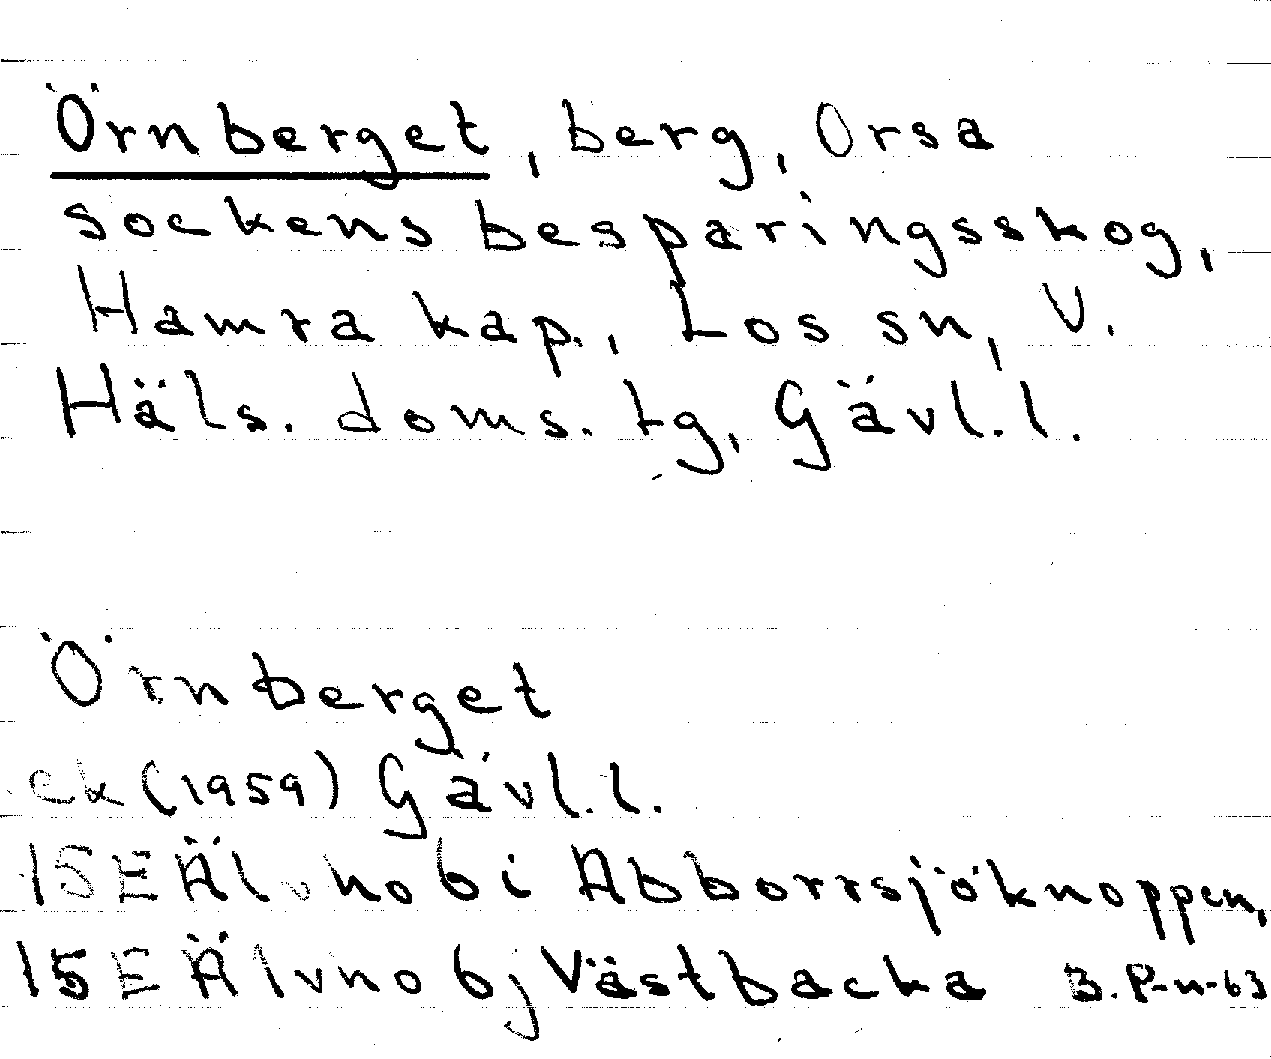 Örnberget, berg, Orsa
sockens besparingsskog,
Hamra kap., Los sn, V.
Häls. doms. tg, Gävl.l.
Örnberget
ek (1959) Gävl.l.
15E Älvho 6i Abborrsjöknoppen,
15E Älvho 6j Västbacka B. P-n-63